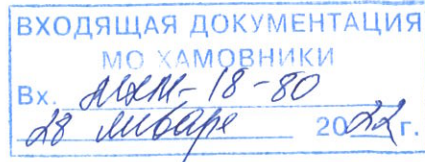 ВХОДЯЩАЯ ДОКУМЕНТАЦИЯ
МО ХАМОВНИКИ
Вх. МХМ-18-80
28 января 2022 г.